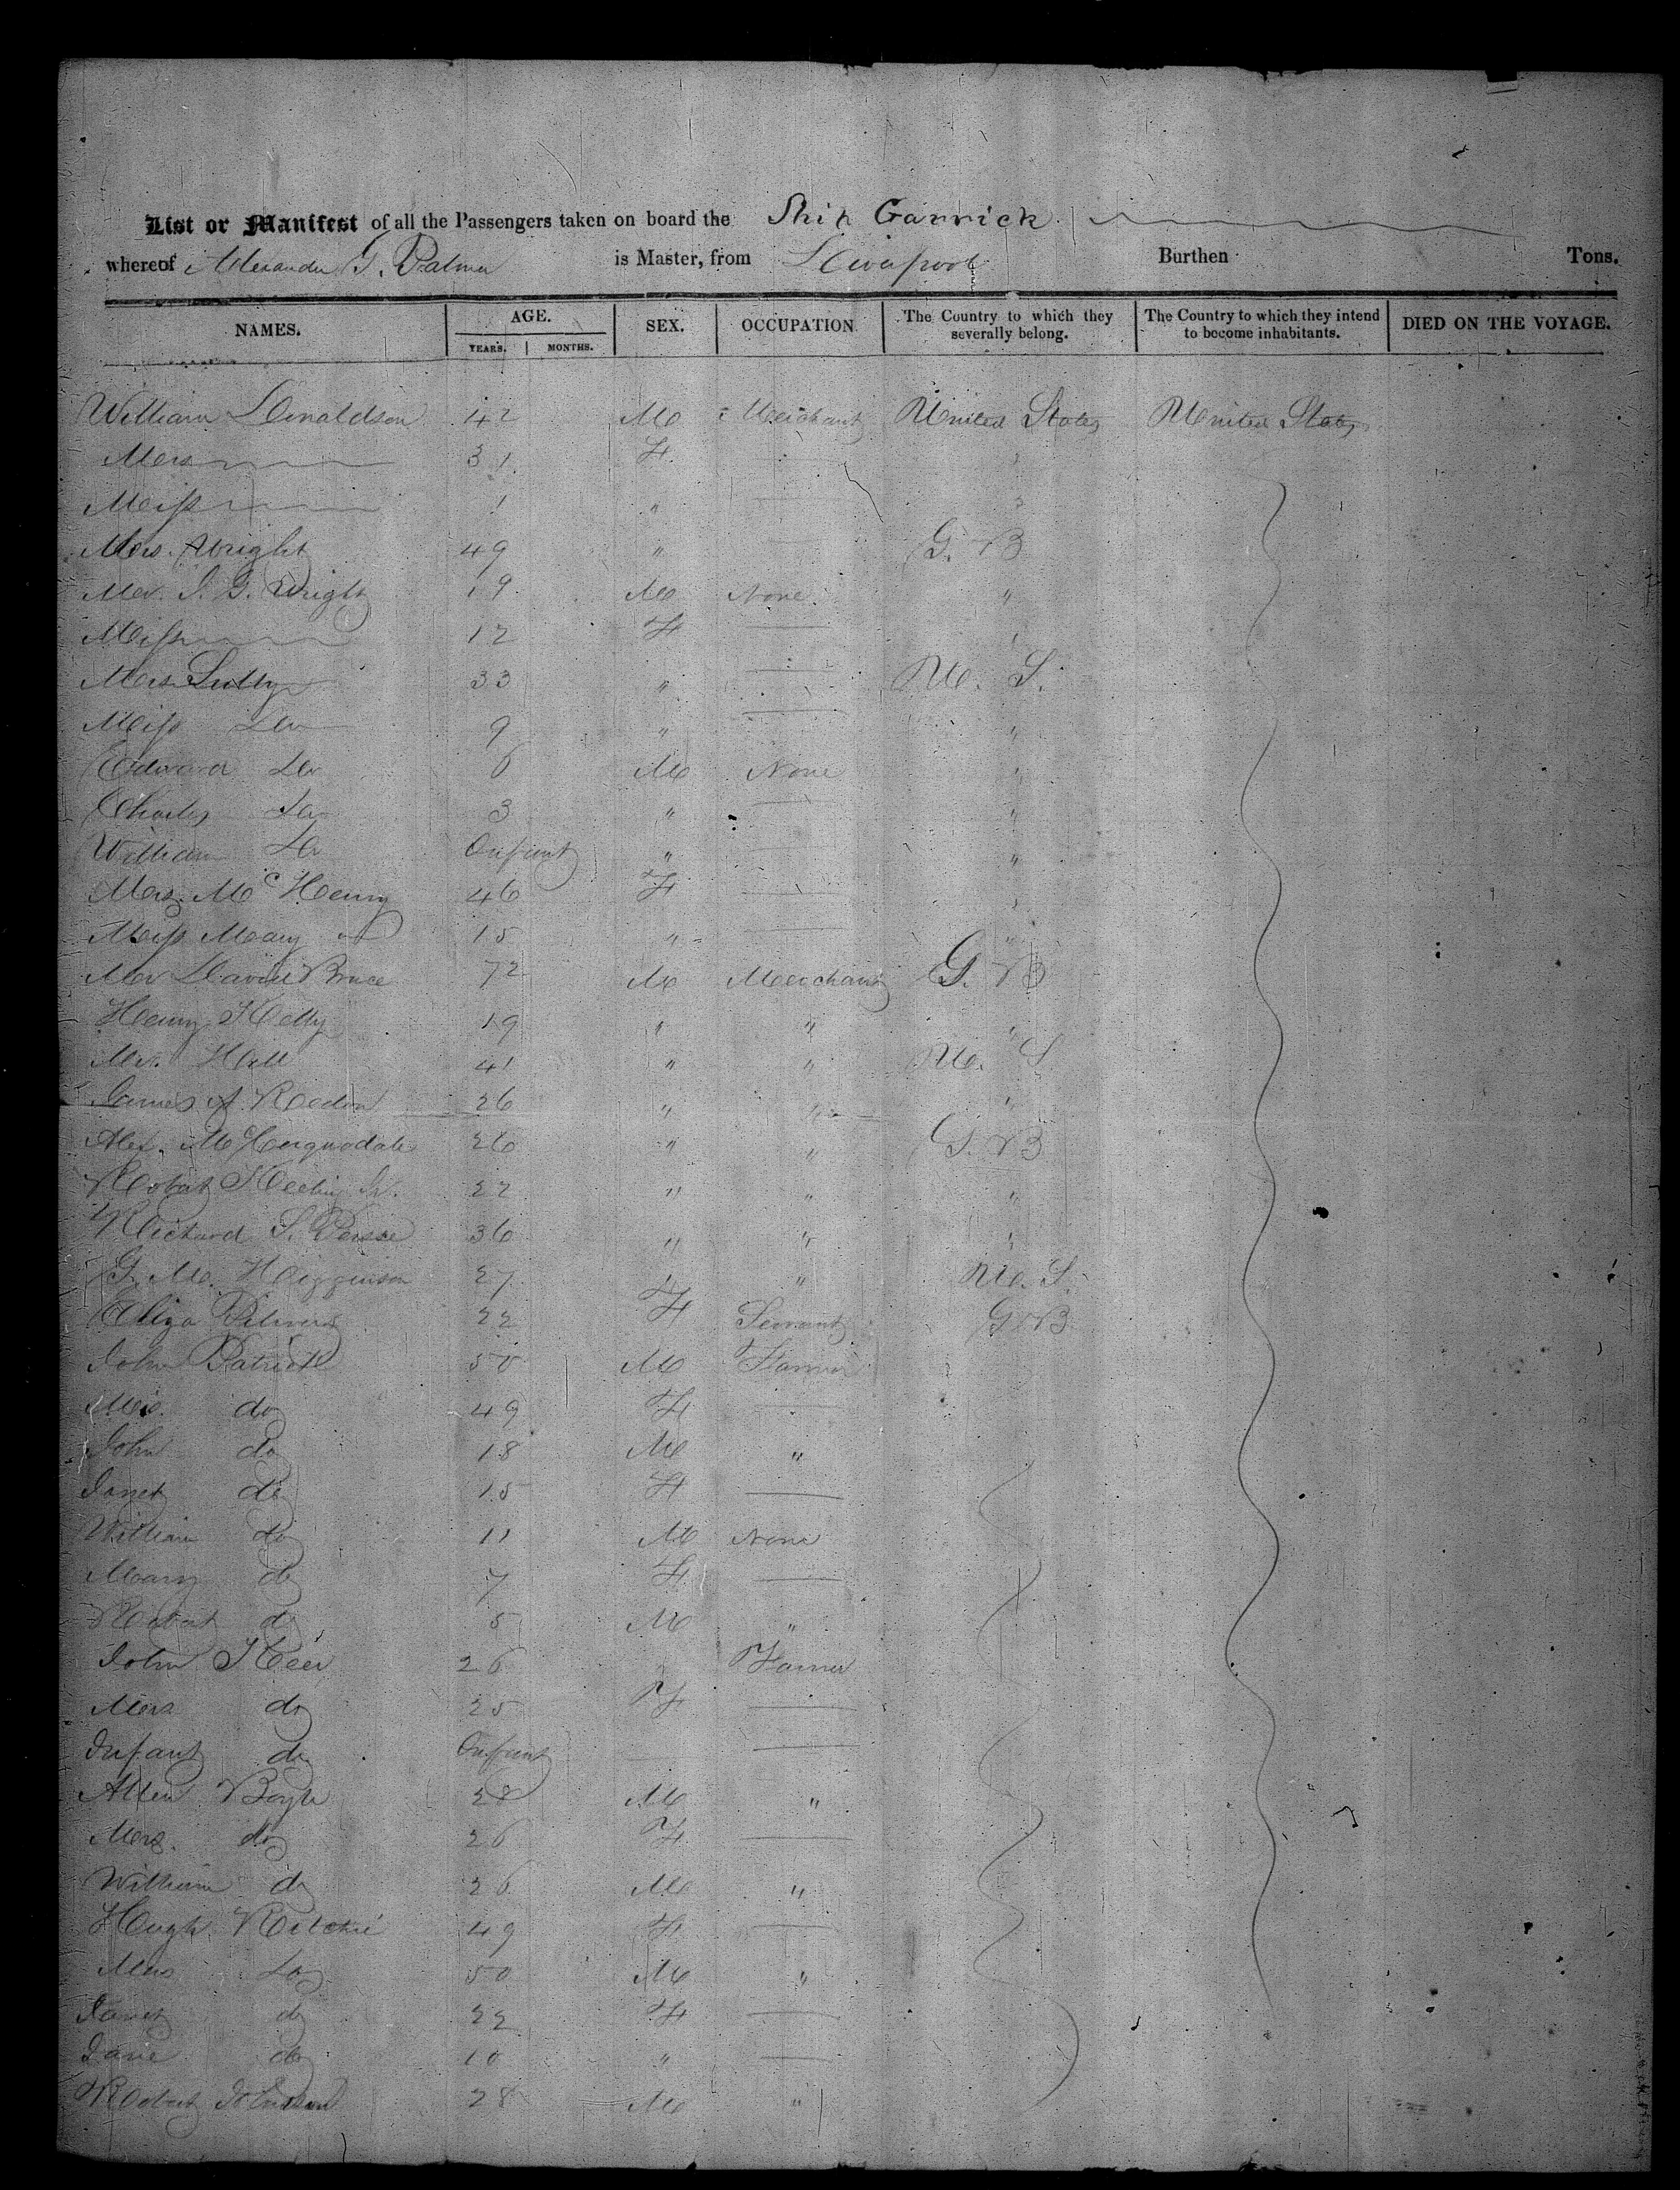 List or Manifest of all the Passengers taken on board the Ship Garrick
whereof Alexander G. Palmer is Master, from Liverpool Burthen Tons.
NAMES. AGE. YEARS. MONTHS. SEX. OCCUPATION The Country to which they severally belong. The Country to which they intend to become inhabitants. DIED ON THE VOYAGE.
William Donaldson 42 M Merchant United States United States
Mrs 31 F
Miss 1 "
Mrs. Wright 49 " G. B
Mr. J. G. Wright 19 M None "
Miss 12 F
Mrs Sully 33 " U. S.
Miss Do 9 " "
Edward Do 6 M None "
Charles Do 3 " "
William Do Infant " "
Mrs. McHenry 46 F
Miss Mary 15 " "
Mr David Bruce 72 M Merchant G. B
Henry Kelly 19 " " "
Mr. Hall 41 " " U. S
James A. 26 " " "
Alex. 26 " " G. B
Robert 22 " " "
Richard S. 36 " " "
G. M. Higginson 27 " " U. S.
Eliza 22 F Servant G B
John Patrick 50 M Farmer
Mrs. do 49 F
John do 18 M "
Janet do 15 F
William do 11 M None
Mary do 7 F
Robert do 5 M "
John Keer 26 " Farmer
Mrs do 25 F
Infant do Infant
Allen Boyle 28 M "
Mrs. do 26 F
William do 26 M "
Hugh Ritchie 49 F
Mrs Do 50 M "
Janet do 22 F
Jane do 10 "
Robert Johnson 28 M "